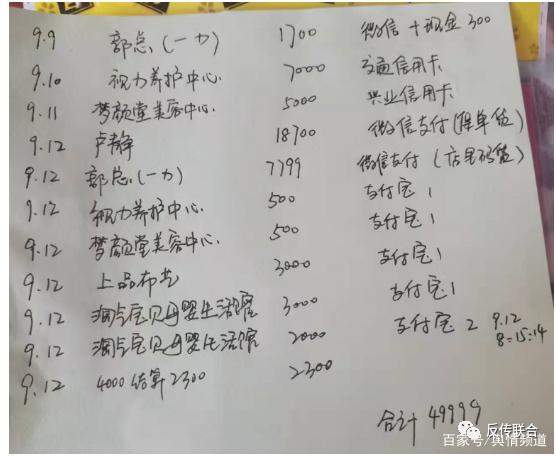 9.9 郭总(一力) 1700 微信+现金300
9.10 视力养护中心. 7000 交通信用卡
9.11 梦颜堂美容中心. 5000 兴业信用卡
9.12 卢静 18700 微信支付(保单贷)
9.12 郭总(一力) 7799 微信支付(店里码贷)
9.12 视力养护中心. 500 支付宝1
9.12 梦颜堂美容中心. 500 支付宝1
9.12 上品布艺 3000 支付宝1
9.12 淘气宝贝母婴生活馆 3000 支付宝1
9.12 淘气宝贝母婴生活馆 2000 支付宝2 9.12
8:15:14
9.12 4000结算2300 2300
合计49999
反传联合
百家号/舆情频道